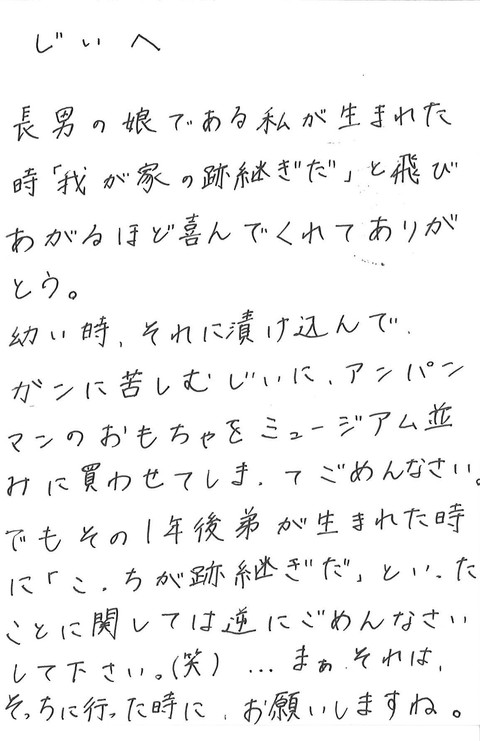 じいへ
長男の娘である私が生まれた
時「我が家の跡継ぎだ」と飛び
あがるほど喜んでくれてありが
とう。
幼い時、それに漬け込んで、
ガンに苦しむじいに、アンパン
マンのおもちゃをミュージアム並
みに買わせてしまってごめんなさい。
でもその1年後弟が生まれた時
に「こっちが跡継ぎだ」といった
ことに関しては逆にごめんなさい
して下さい。(笑) …まぁ、それは、
そっちに行った時に、お願いしますね。